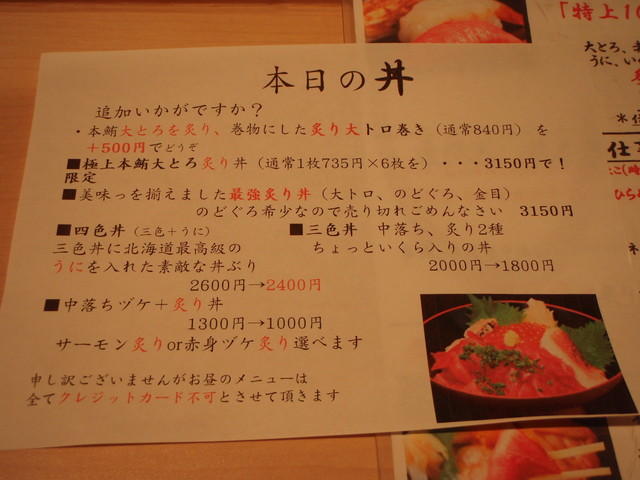 「特上1
大とろ、
うに、い
本日の丼
追加いかがですか？
・本鮪大とろを炙り、巻物にした炙り大トロ巻き（通常840円）を
＋500円でどうぞ
■極上本鮪大とろ炙り丼（通常1枚735円×6枚を）・・・3150円で！
限定
■美味っを揃えました最強炙り丼（大トロ、のどぐろ、金目）
のどぐろ希少なので売り切れごめんなさい 3150円
■四色丼（三色＋うに）
三色丼に北海道最高級の
うにを入れた素敵な丼ぶり
2600円→2400円
■三色丼 中落ち、炙り2種
ちょっといくら入りの丼
2000円→1800円
■中落ちヅケ＋炙り丼
1300円→1000円
サーモン炙りor赤身ヅケ炙り選べます
申し訳ございませんがお昼のメニューは
全てクレジットカード不可とさせて頂きます
ひら